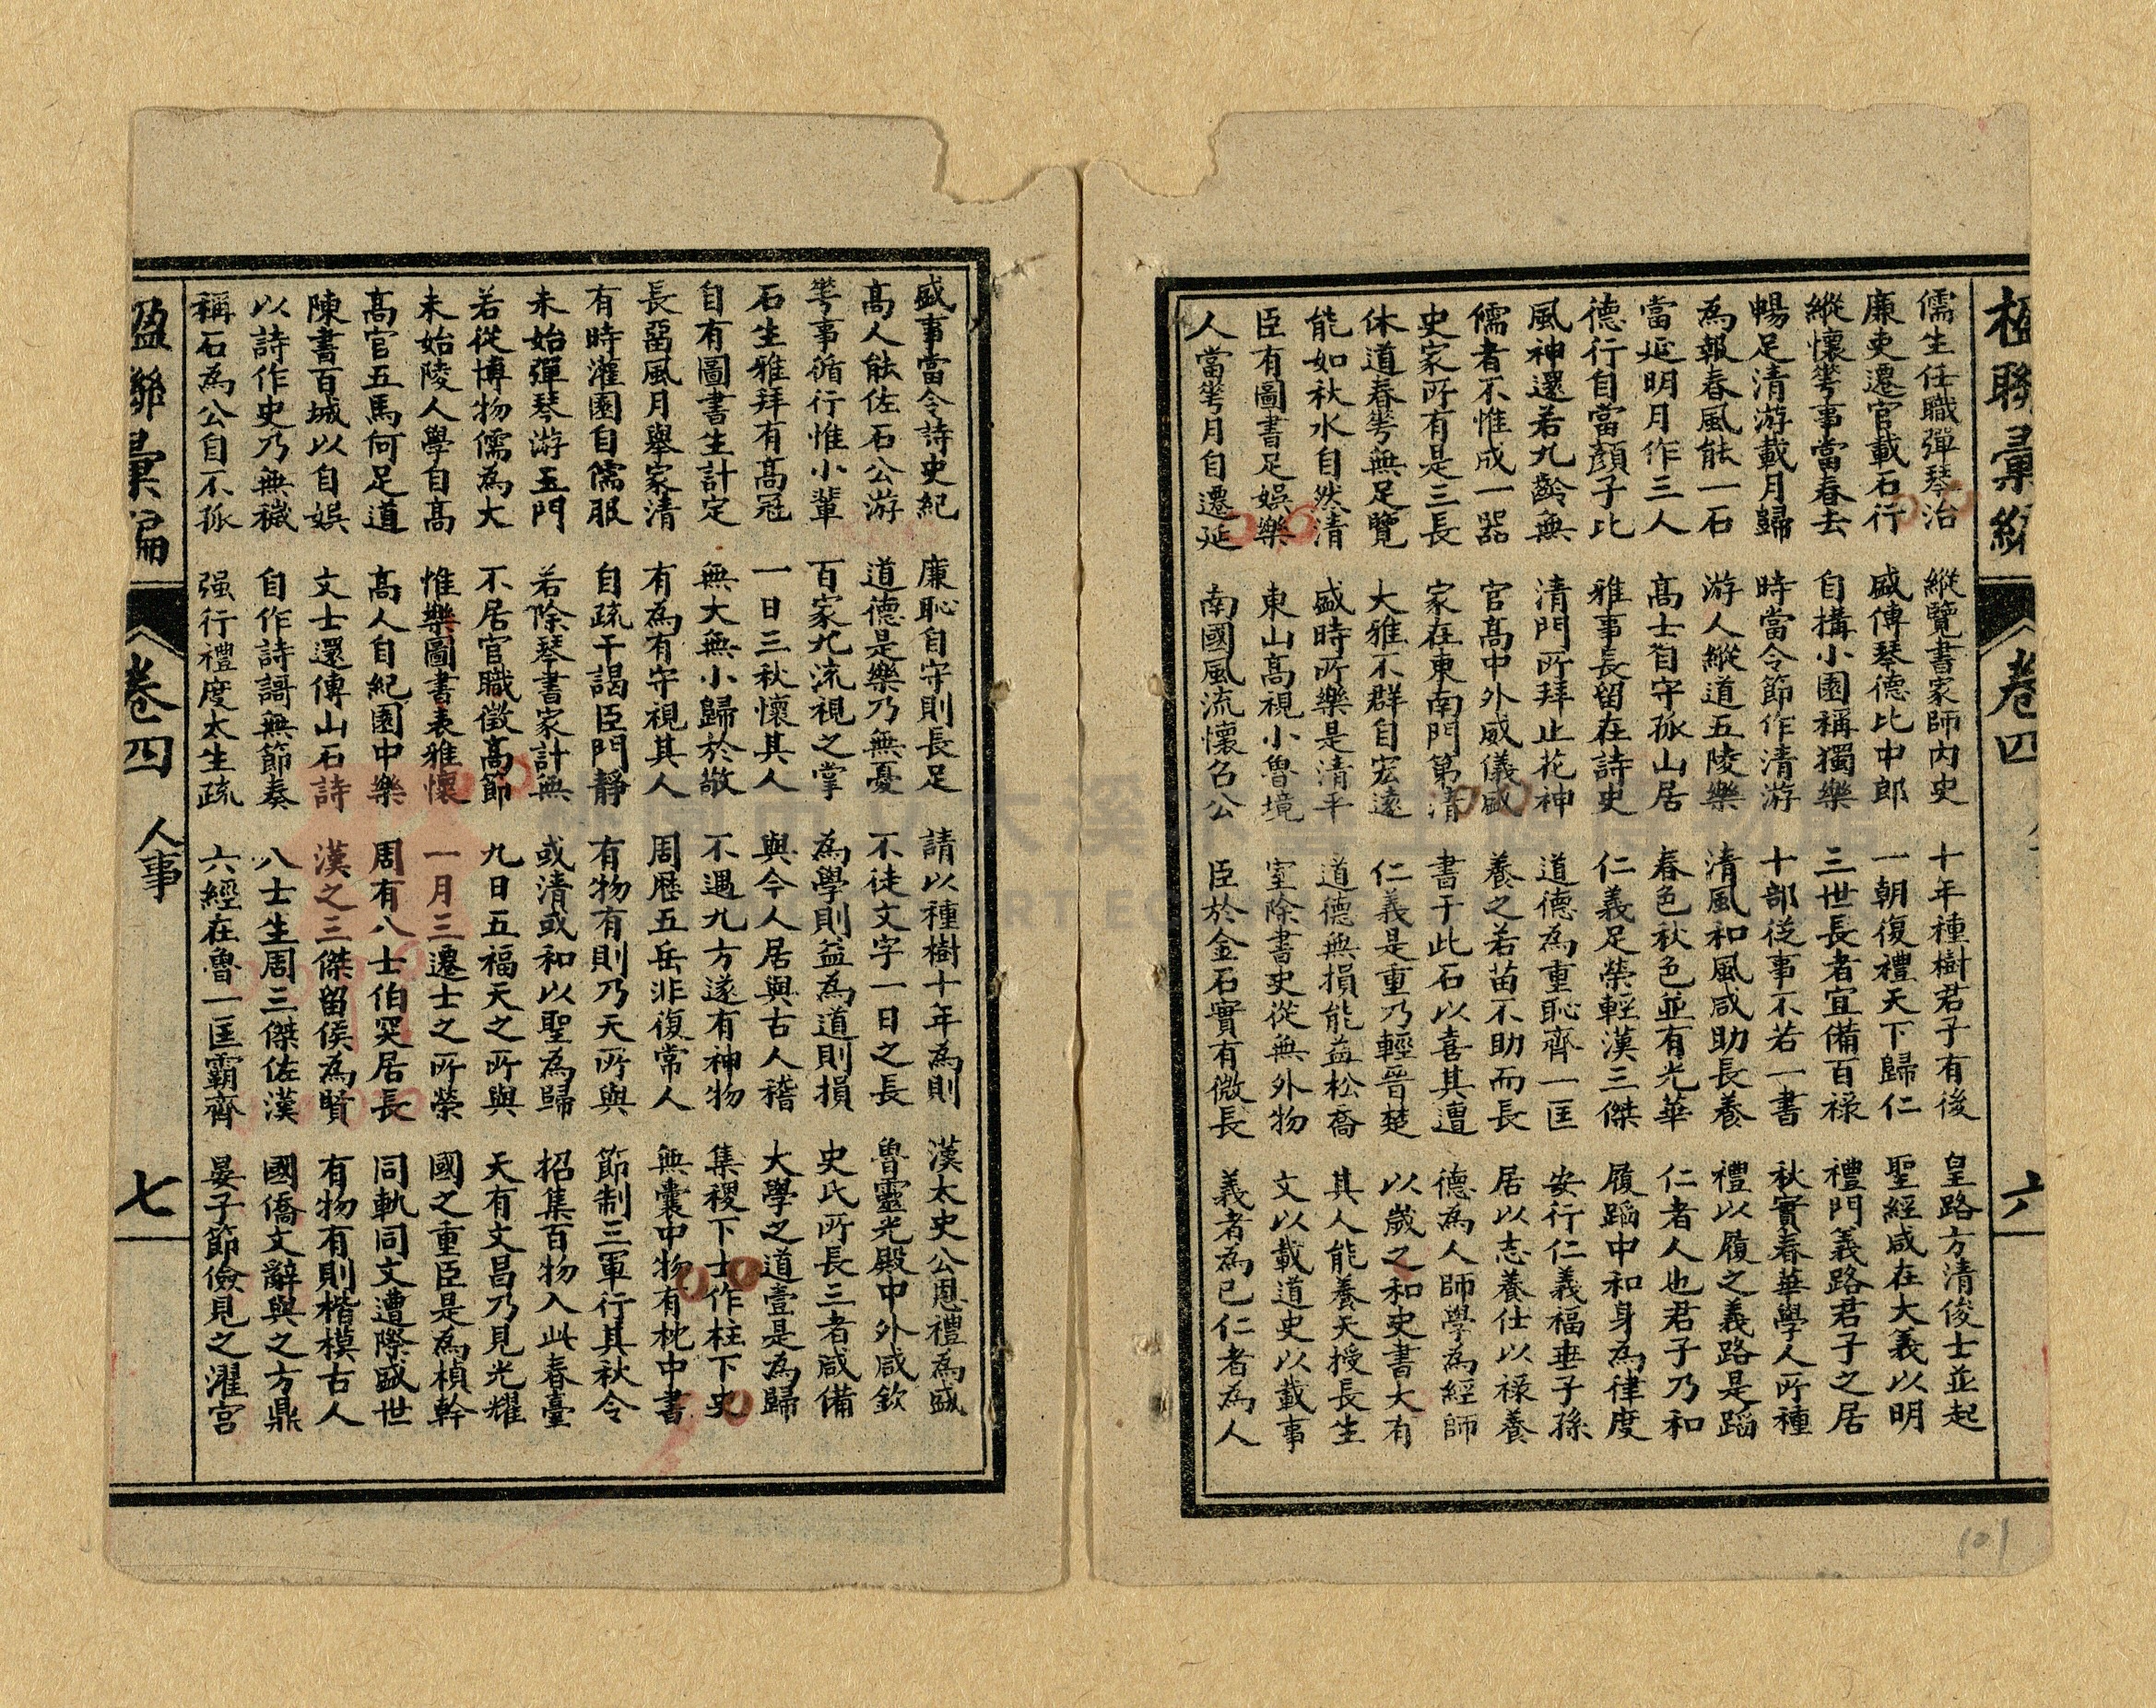 楹聯彙編
卷四
六
儒生任職彈琴治
廉吏遷官載石行
縱懷荂事當春去
暢足清游載月歸
為報春風能一石
當延明月作三人
德行自當顏子比
風神還若九齡無
儒者不惟成一器
史家所有是三長
休道春荂無足覽
能如秋水自然清
臣有圖書足娛樂
人當荂月自遷延
縱覽書家師內史
盛傳琴德比中郎
自構小園稱獨樂
時當令節作清游
游人縱道五陵樂
高士自守孤山居
雅事長留在詩史
清門所拜止花神
官高中外威儀盛
家在東南門第清
大雅不群自宏遠
盛時所樂是清平
東山高視小魯境
南國風流懷召公
十年種樹君子有後
一朝復禮天下歸仁
三世長者宜備百祿
十部從事不若一書
清風和風咸助長養
春色秋色並有光華
仁義足榮輕漢三傑
道德為重恥齊一匡
養之若苗不助而長
書于此石以喜其遭
仁義是重乃輕晉楚
道德無損能益松喬
室除書史從無外物
臣於金石實有微長
皇路方清俊士並起
聖經咸在大義以明
禮門義路君子之居
秋實春華學人所種
禮以履之義路是蹈
仁者人也君子乃和
履蹈中和身為律度
安行仁義福垂子孫
居以志養仕以祿養
德為人師學為經師
以歲之和史書大有
其人能養天授長生
文以載道史以載事
義者為己仁者為人
盛事當令詩史紀
高人能佐石公游
荂事循行惟小輩
石生雅拜有高冠
自有圖書生計定
長留風月舉家清
有時灌園自儒服
未始彈琴游五門
若從博物儒為大
未始陵人學自高
高官五馬何足道
陳書百城以自娛
以詩作史乃無穢
稱石為公自不孤
廉恥自守則長足
道德是樂乃無憂
百家九流視之掌
一日三秋懷其人
無大無小歸於敬
有為有守視其人
自疏干謁臣門靜
若除琴書家計無
不居官職徵高節
惟樂圖書表雅懷
高人自紀園中樂
文士還傳山石詩
自作詩謌無節奏
强行禮度太生疏
請以種樹十年為則
不徒文字一日之長
為學則益為道則損
與今人居與古人稽
不遇九方遂有神物
周歷五岳非復常人
有物有則乃天所與
或清或和以聖為歸
九日五福天之所與
一月三遷士之所榮
周有八士伯突居長
漢之三傑留侯為賢
八士生周三傑佐漢
六經在魯一匡霸齊
漢太史公恩禮為盛
魯靈光殿中外咸欽
史氏所長三者咸備
大學之道壹是為歸
集稷下士作柱下史
無囊中物有枕中書
節制三軍行其秋令
招集百物入此春臺
天有文昌乃見光耀
國之重臣是為楨幹
同軌同文遭際盛世
有物有則楷模古人
國僑文辭與之方鼎
晏子節儉見之濯宮
楹聯彙編
卷四
人事
七
101